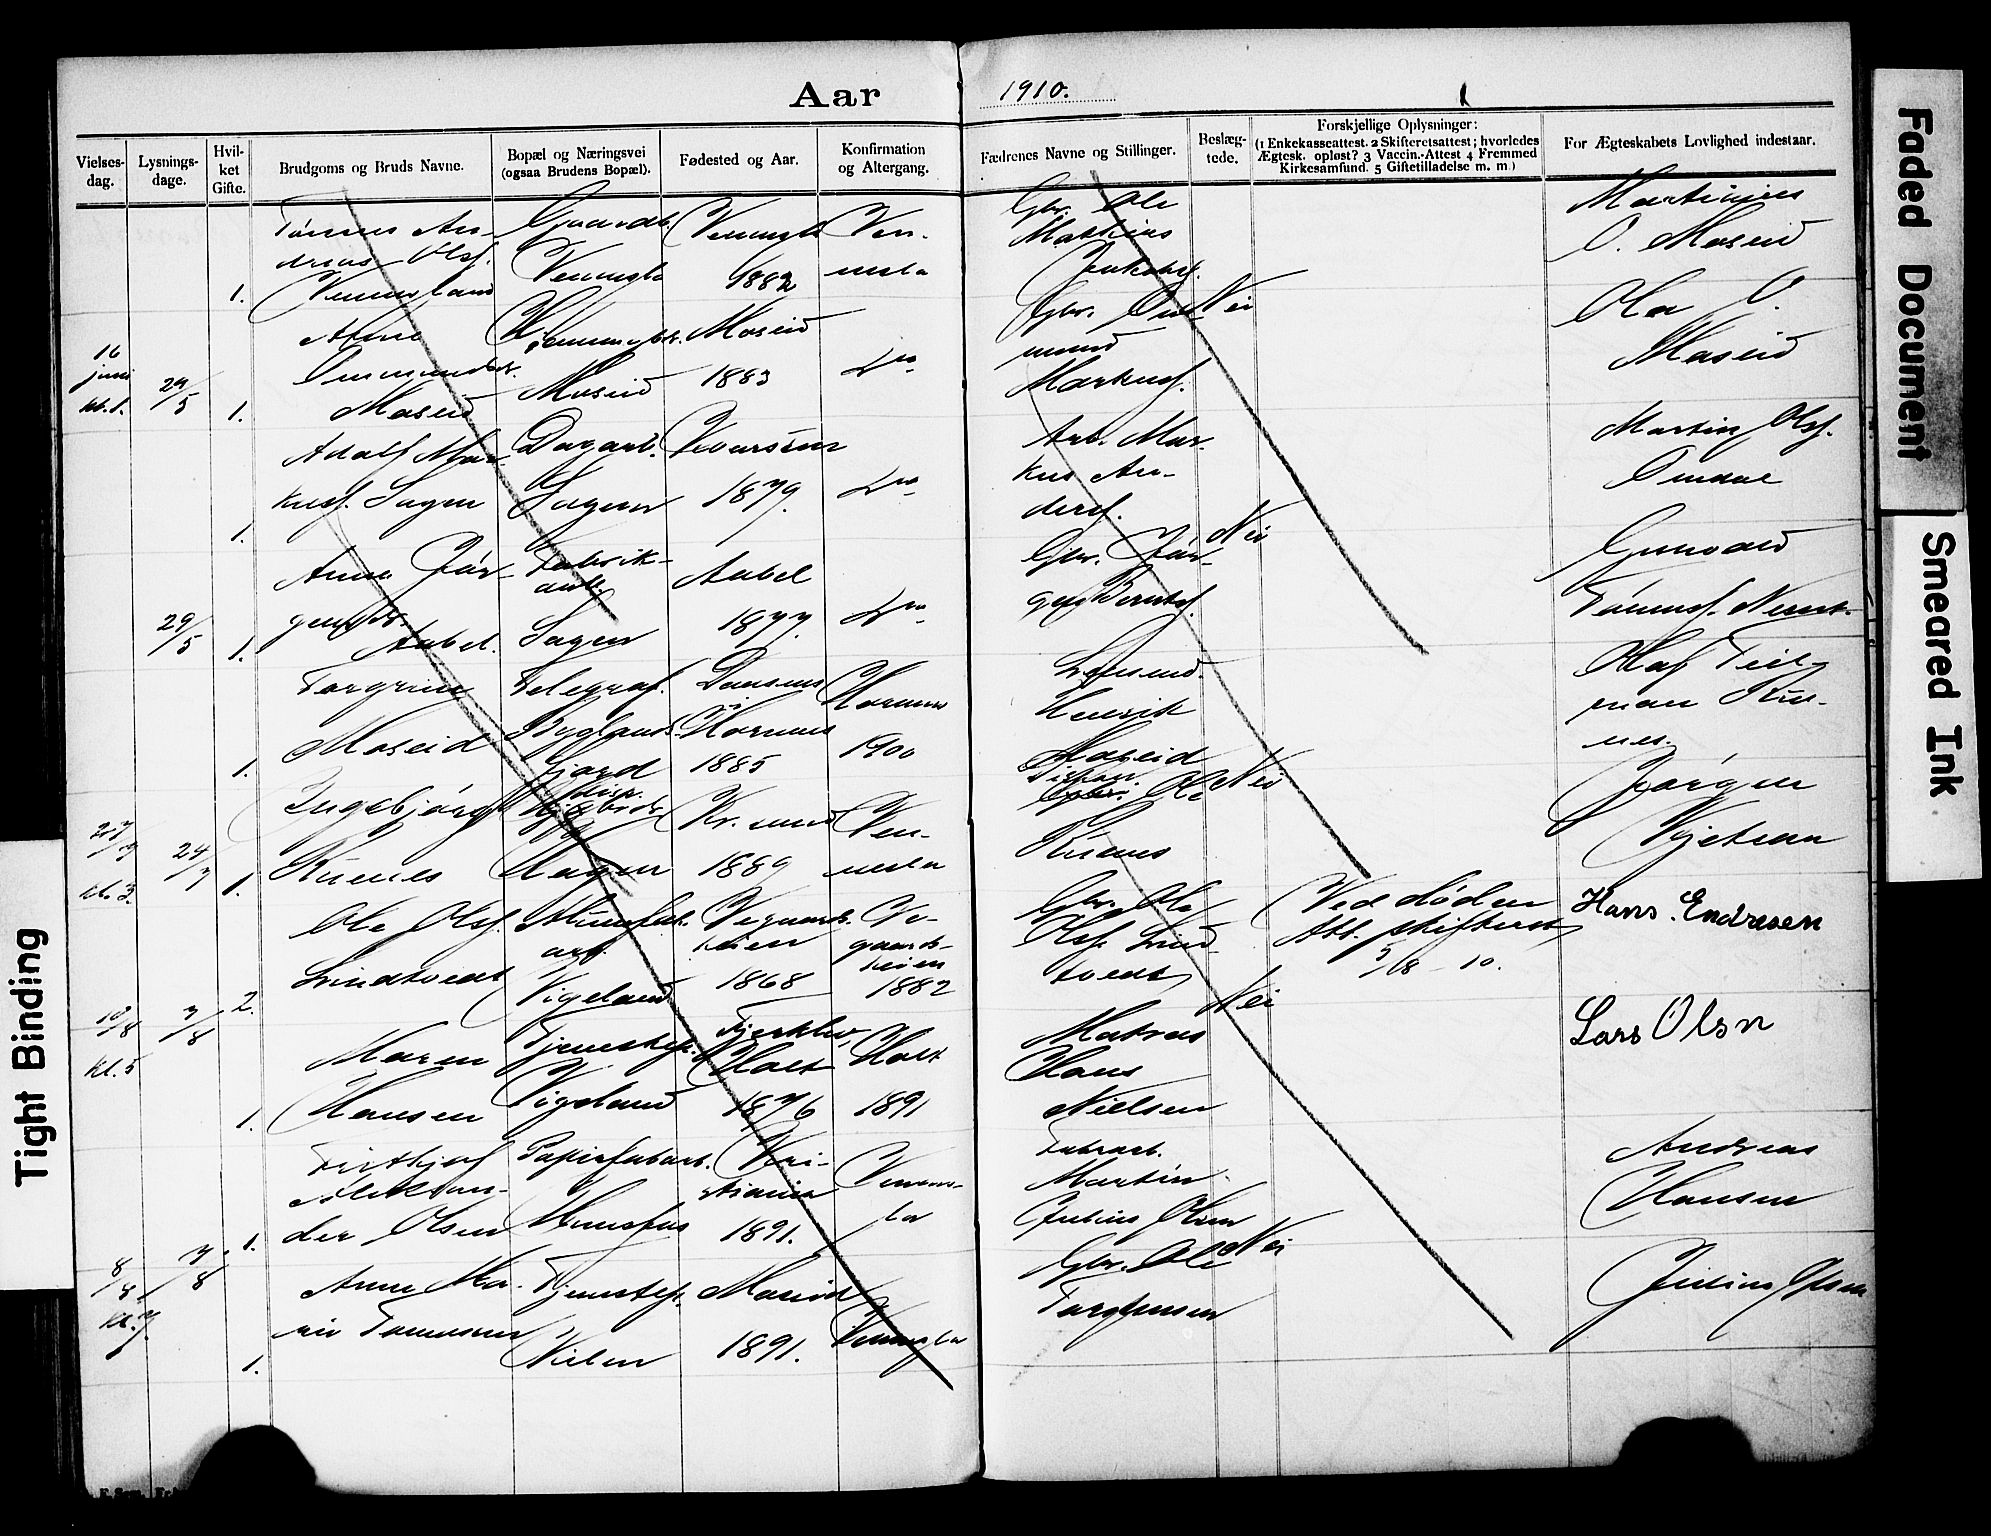 Aar 1910.
Vielses-
dag.
Lysnings-
dage.
Hvil-
ket
Gifte.
Brudgoms og Bruds Navne.
Bopæl og Næringsvei
(ogsaa Brudens Bopæl).
Fødested og Aar.
Konfirmation
og Altergang.
Fædrenes Navne og Stillinger.
Beslæg-
tede.
Forskjellige Oplysninger:
(1 Enkekasseattest. 2 Skifteretsattest; hvorledes
Ægtesk. opløst? 3 Vaccin.-Attest 4 Fremmed
Kirkesamfund. 5 Giftetilladelse m. m.)
For Ægteskabets Lovlighed indestaar.
1.
Tønnes An-
dreas Olsf.
Vennesland
Gaardb.
Vennesla
Vennesla
1882
Ven-
nesla
Gbr. Ole
Mathias
Jakobsf.
Nei
Martinius
O. Moseid
16
juni
kl. 1.
29/5
1.
Anne
Ommundsdr.
Moseid
Hjemmeb.
Moseid
Moseid
1883
Do.
Gbr. Om-
mund
Markusf.
Ola O.
Moseid
1.
Adolf Mar-
kusf. Sagen
Dagarb.
Sagen
Kvarstein
1879.
Do.
Arb. Mar-
kus An-
dersf.
Nei
Martin Olsf.
Omdal
29/5
1.
Anna Jør-
gensdr.
Aabel.
Fabrik-
arb.
Sagen
Aabel
1877.
Do.
Gbr. Jør-
gen Berntsf.
Gunvald
Tønnesf.
1.
Torgrim
Moseid
Telegraf.
Byglands-
fjord
1885
Hornnes
1900
Lensmd.
Henrik
Moseid
Nei
Olaf Teil-
man Rui-
nes.
27/7
kl. 3.
24/7
1.
Ingebjørg
Ruenes
Hagen
Kr.sund
1889
Ven-
nesla
Ole
Jørgen
Vigeland
2.
Ole Olsf.
Lindtvedt
arb.
Vigeland
Vegaards-
heien
1868
Ve-
gaards-
heien
1882
Gbr. Ole
Olsf. Lind-
tvedt
Nei
Ved døden
Att. skifteret
5/8 - 10.
Hans. Endresen
10/8
kl. 5
7/8
1.
Maren
Hansen
Tjenestep.
Vigeland
Holt
1876
Holt
1891
Matros
Hans
Nielsen
Lars Olsn
1.
Frithjof
Aleksan-
der Olsen
Papirfabarb.
Hunsfos
Kri-
stiania
1891.
Vennes-
la
Fabrarb.
Martin
Julius Olsen
Nei
Andreas
Hansen
8/8
kl. 7.
7/8
1.
Anne Ma-
rie Tomessen
Tjenestep.
Moseid
1891.
Vennesla
Gbr. Ole
Torgensen
Julius Olsen
Faded Document
Smeared Ink
Tight Binding